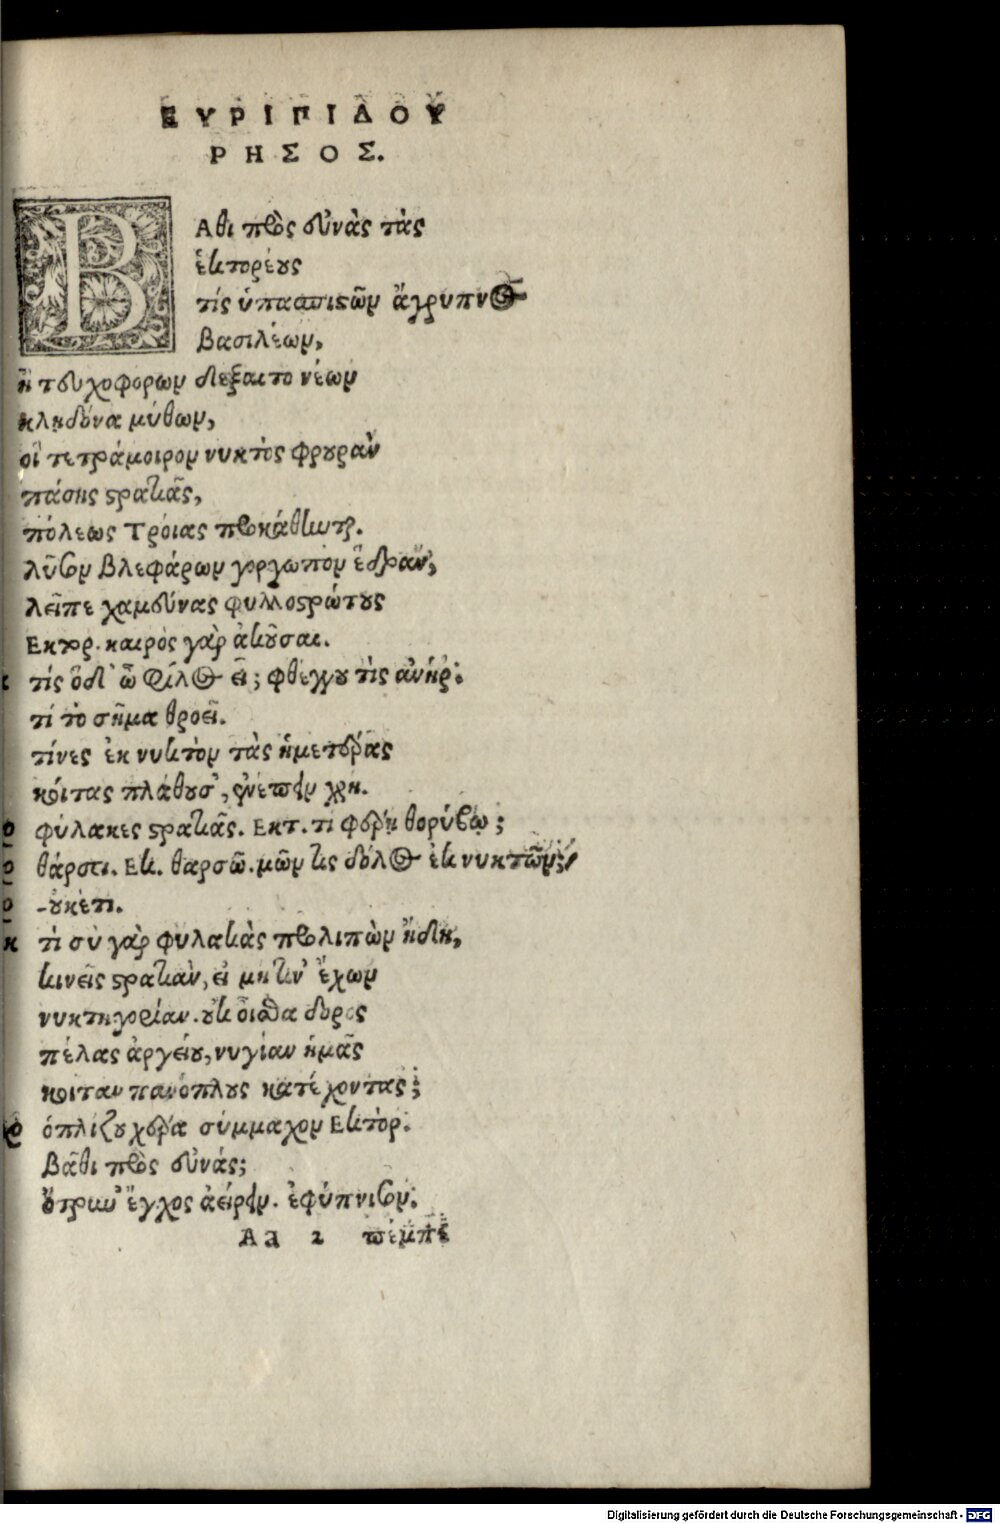 ΕΥΡΙΠΙΔΟΥ
ΡΗΣΟΣ.
ΒΑθι πρὸς εὐνὰς τὰς
ἑκτορέους
τίς ὑπασπιστῶν ἄγρυπνος
βασιλέων,
ἢ τευχοφόρων δέξαιτο νέων
κληδόνα μύθων,
οἳ τετράμοιρον νυκτὸς φρουρὰν
πάσης στρατιᾶς,
πόλεως Τροίας προκάθηνται.
λῦσον βλεφάρων γοργωπὸν ἕδραν,
λεῖπε χαμεύνας φυλλοστρώτους
Εκτορ. καιρὸς γὰρ ἀκοῦσαι.
τίς ὅδ' ὦ φίλος εἶ; φθέγγου τίς ἀνήρ;
τί τὸ σῆμα θροεῖ.
τίνες ἐκ νυκτὸν τὰς ἡμετέρας
κοίτας πλάθουσ', ἐνέπειν χρή.
φύλακες στρατιᾶς. Εκτ. τί φέρῃ θορύβῳ;
θάρσει. Εκ. θαρσῶ. μῶν τις δόλος ἐκ νυκτῶν;
-ουκέτι.
κ τί σὺ γὰρ φυλακὰς προλιπὼν ἤδη,
κινεῖς στρατιὰν, εἰ μή τιν' ἔχων
νυκτηγορίαν. οὐκ οἶσθα δορὸς
πέλας ἀργείου, νυχίαν ἡμᾶς
κοίταν πανόπλους κατέχοντας;
ὁπλίζου χέρα σύμμαχον Εκτορ.
βᾶθι πρὸς εὐνάς;
ὄτρυν' ἔγχος ἀείρειν. ἐφύπνισον.
Aa 2 πέμπε
Digitalisierung gefördert durch die Deutsche Forschungsgemeinschaft - DFG